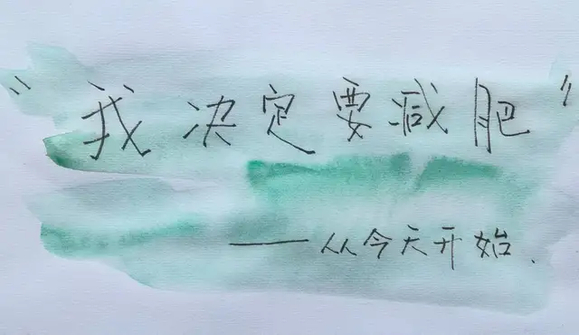 "我决定要减肥"
——从今天开始、